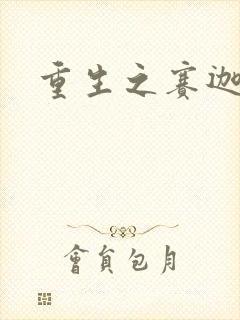 重生之赛迦
會員包月